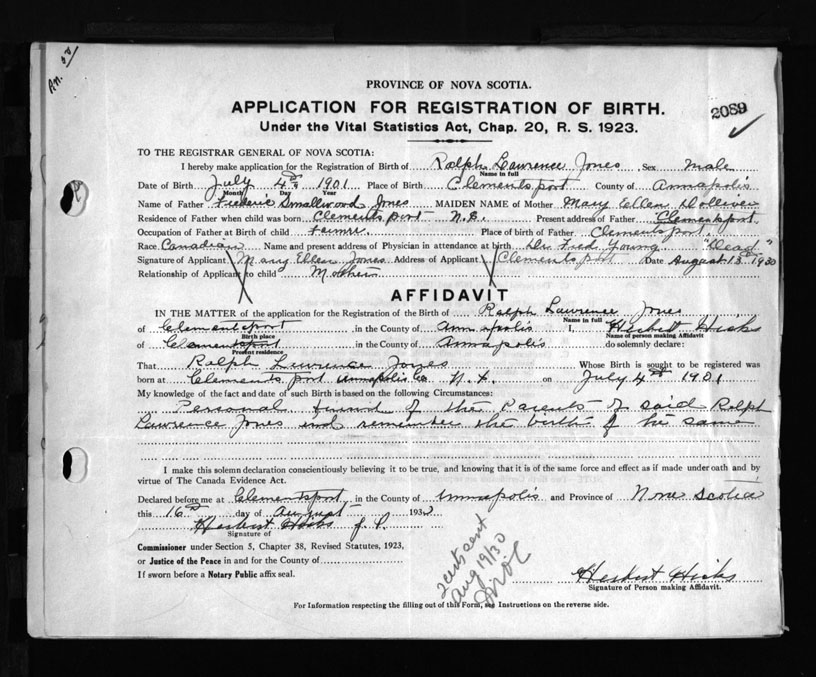 An. 53
PROVINCE OF NOVA SCOTIA.
APPLICATION FOR REGISTRATION OF BIRTH.
2089
Under the Vital Statistics Act, Chap. 20, R. S. 1923.
TO THE REGISTRAR GENERAL OF NOVA SCOTIA:
I hereby make application for the Registration of Birth of Ralph Lawrence Jones Sex Male
Name in full
Date of Birth July 4th 1901 Place of Birth Clementsport County of Annapolis
Month Day Year
Name of Father Frederic Smallwood Jones MAIDEN NAME of Mother Mary Ellen Dolliver
Residence of Father when child was born Clementsport N.S. Present address of Father Clementsport
Occupation of Father at Birth of child Farmer Place of birth of Father Clementsport.
Race Canadian Name and present address of Physician in attendance at birth Dr Fred Young "Dead"
Signature of Applicant Mary Ellen Jones Address of Applicant Clementsport Date August 13th 1930
Relationship of Applicant to child Mother
AFFIDAVIT
IN THE MATTER of application for the Registration of the Birth of Ralph Lawrence Jones
Name in full
of Clementsport, in the County of Annapolis I, Herbert Hicks
Birth place Name of person making Affidavit
of Clementsport in the County of Annapolis do solemnly declare:
Present residence
That Ralph Lawrence Jones Whose Birth is sought to be registered was
born at Clementsport Annapolis Co N.S. on July 4th 1901
My knowledge of the fact and date of such Birth is based on the following Circumstances:
Personal friend of the Parents of said Ralph
Lawrence Jones and remember the birth of the same
I make this solemn declaration conscientiously believing it to be true, and knowing that it is of the same force and effect as if made under oath and by
virtue of The Canada Evidence Act.
Declared before me at Clementsport in the County of Annapolis and Province of Nova Scotia
this 16th day of August 1930
Herbert Hicks J. P.
Signature of
Commissioner under Section 5, Chapter 38, Revised Statutes, 1923,
or Justice of the Peace in and for the County of
If sworn before a Notary Public affix seal.
2 certs sent
Aug 19/30
Herbert Hicks
Signature of Person making Affidavit.
For Information respecting the filling out of this Form, see Instructions on the reverse side.